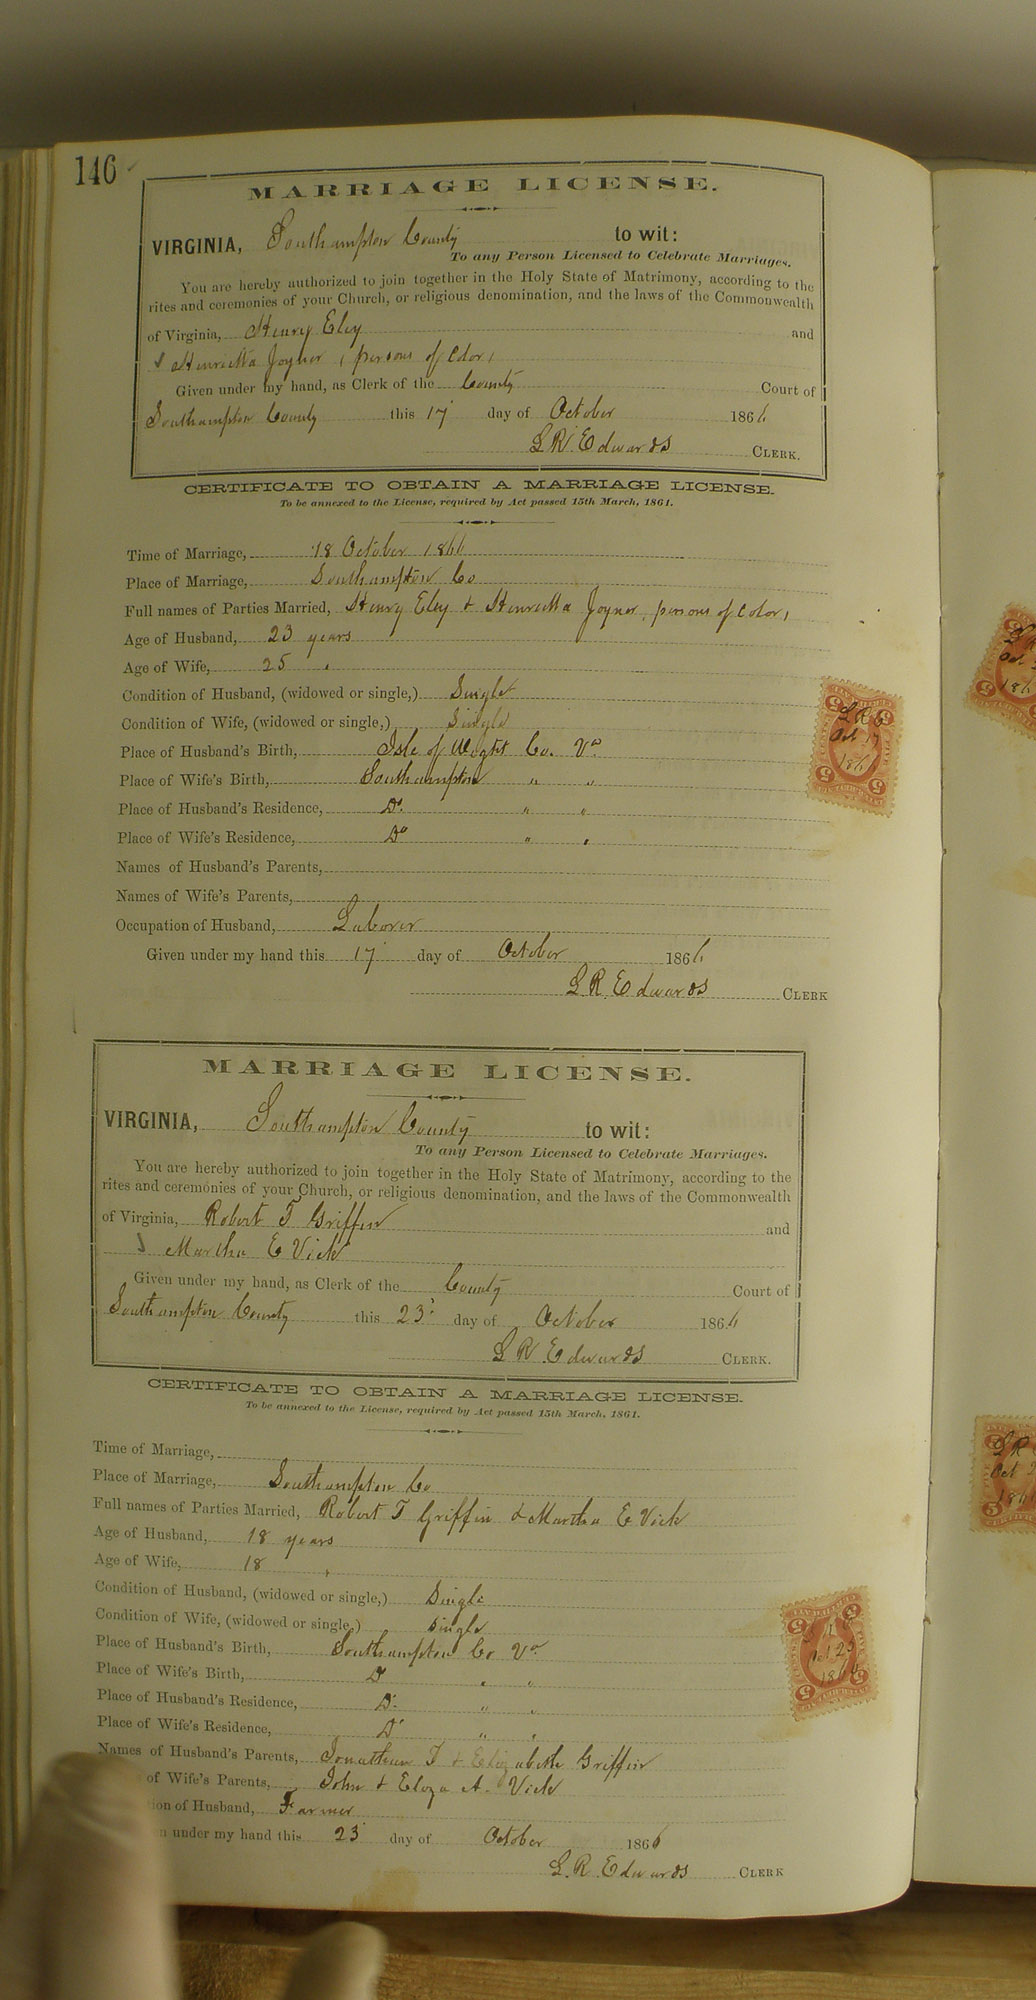 146
MARRIAGE LICENSE.
VIRGINIA, Southampton County to wit:
To any Person Licensed to Celebrate Marriages.
You are hereby authorized to join together in the Holy State of Matrimony, according to the
rites and ceremonies of your Church, or religious denomination, and the laws of the Commonwealth
of Virginia, Henry Eley and
Henrietta Joyner, persons of Color,
Given under my hand, as Clerk of the County Court of
Southampton County this 17 day of October 1866
L R Edwards CLERK.
CERTIFICATE TO OBTAIN A MARRIAGE LICENSE.
To be annexed to the License, required by Act passed 15th March, 1861.
Time of Marriage, 18 October 1866
Place of Marriage, Southampton Co
Full names of Parties Married, Henry Eley & Henrietta Joyner, persons of Color,
Age of Husband, 23 years
Age of Wife, 25 "
Condition of Husband, (widowed or single,) Single
Condition of Wife, (widowed or single,) Single
Place of Husband's Birth, Isle of Wight Co. Va
Place of Wife's Birth, Southampton " "
Place of Husband's Residence, Do " "
Place of Wife's Residence, Do " "
Names of Husband's Parents,
Names of Wife's Parents,
Occupation of Husband, Laborer
Given under my hand this 17 day of October 1866
L R Edwards CLERK
L R E
Oct 17
1866
MARRIAGE LICENSE.
VIRGINIA, Southampton County to wit:
To any Person Licensed to Celebrate Marriages.
You are hereby authorized to join together in the Holy State of Matrimony, according to the
rites and ceremonies of your Church, or religious denomination, and the laws of the Commonwealth
of Virginia, Robert T Griffin and
Martha E Vick
Given under my hand, as Clerk of the County Court of
Southampton County this 23 day of October 1866
L R Edwards CLERK.
CERTIFICATE TO OBTAIN A MARRIAGE LICENSE.
To be annexed to the License, required by Act passed 15th March, 1861.
Time of Marriage,
Place of Marriage, Southampton Co
Full names of Parties Married, Robert T Griffin & Martha E Vick
Age of Husband, 18 years
Age of Wife, 18 "
Condition of Husband, (widowed or single,) Single
Condition of Wife, (widowed or single,) Single
Place of Husband's Birth, Southampton Co Va
Place of Wife's Birth, Do " "
Place of Husband's Residence, Do " "
Place of Wife's Residence, Do " "
Names of Husband's Parents, Jonathan T & Elizabeth Griffin
of Wife's Parents, John & Eliza A. Vick
ion of Husband, Farmer
n under my hand this 23 day of October 1866
L. R. Edwards CLERK
Oct 23
1866